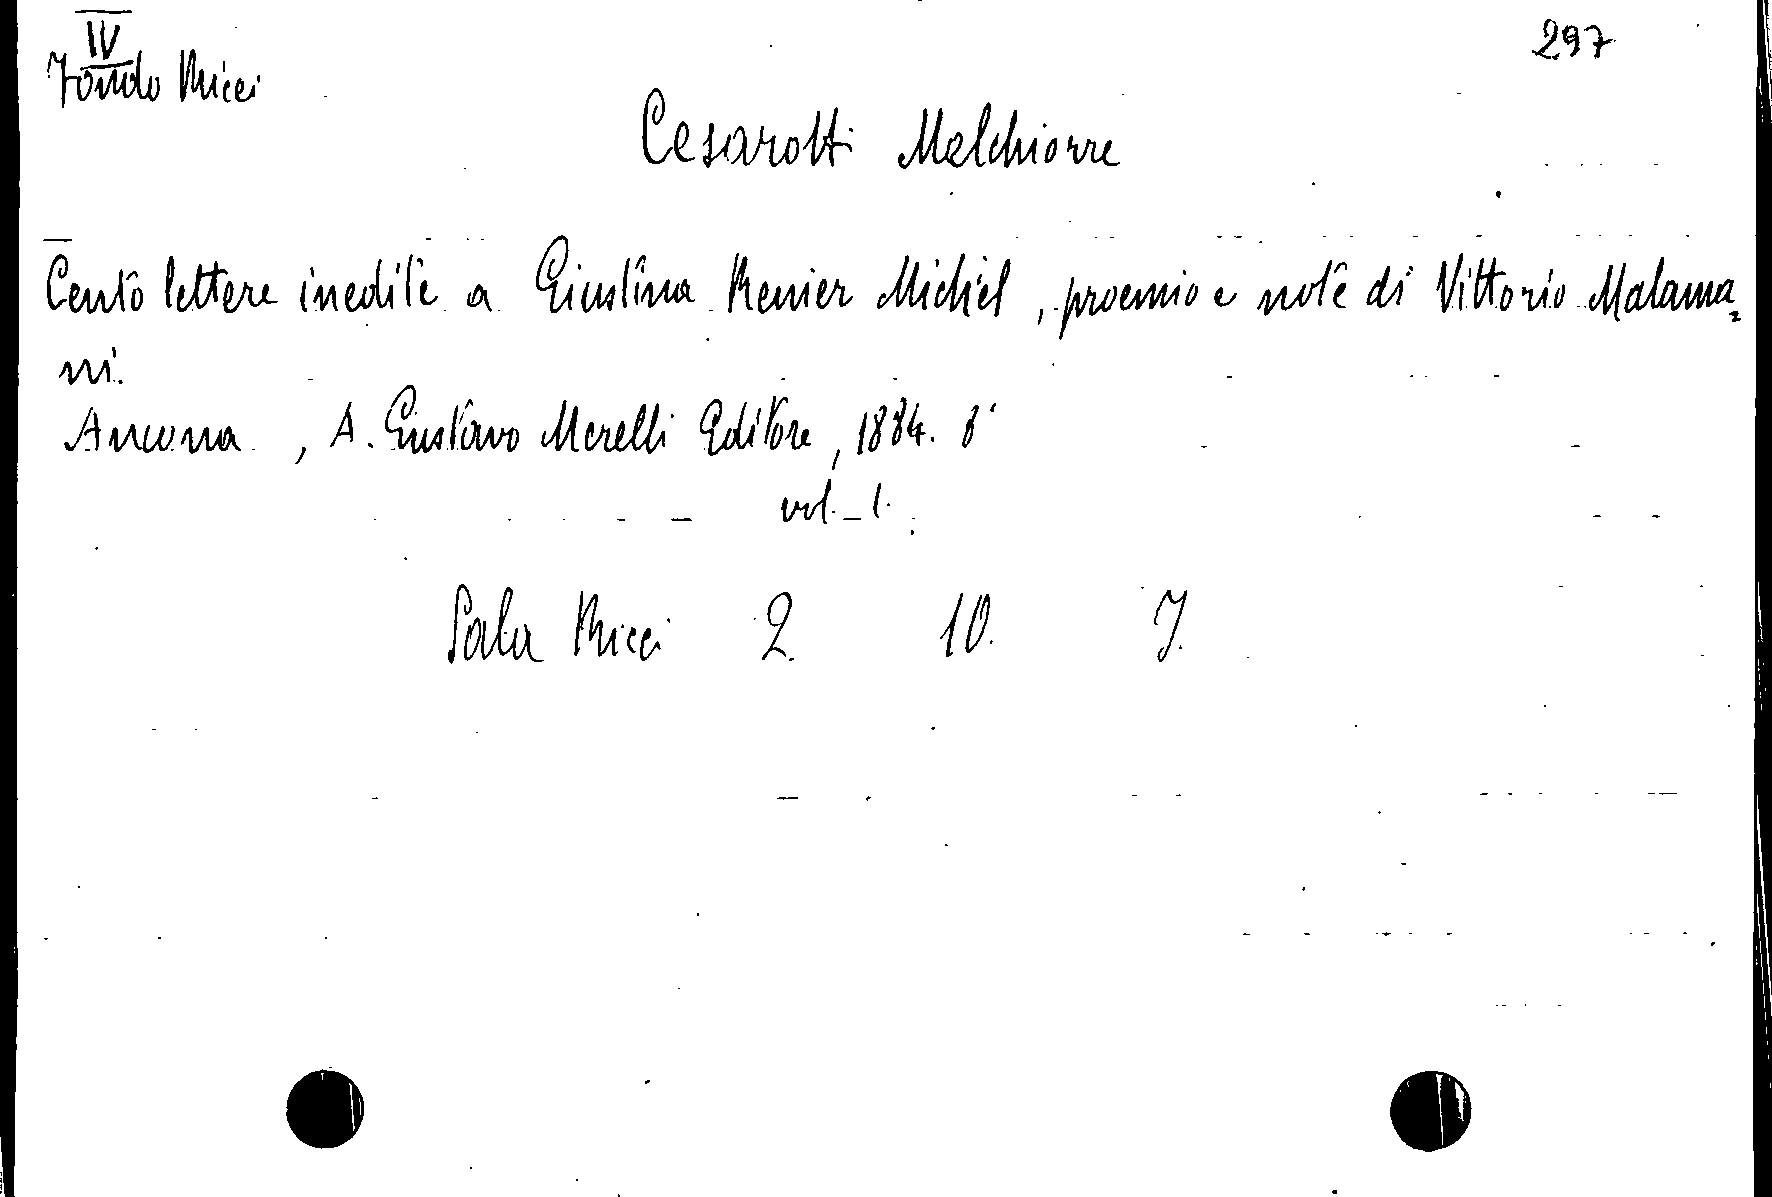 IV
Fondo Ricci
297
Cesarotti Melchiorre
Cento lettere inedite a Giustina Renier Michiel, proemio e note di Vittorio Malama=
ni.
Ancona, A. Gustavo Morelli Editore, 1884. 8°
vol. 1.
Sala Ricci 2. 10. 7.